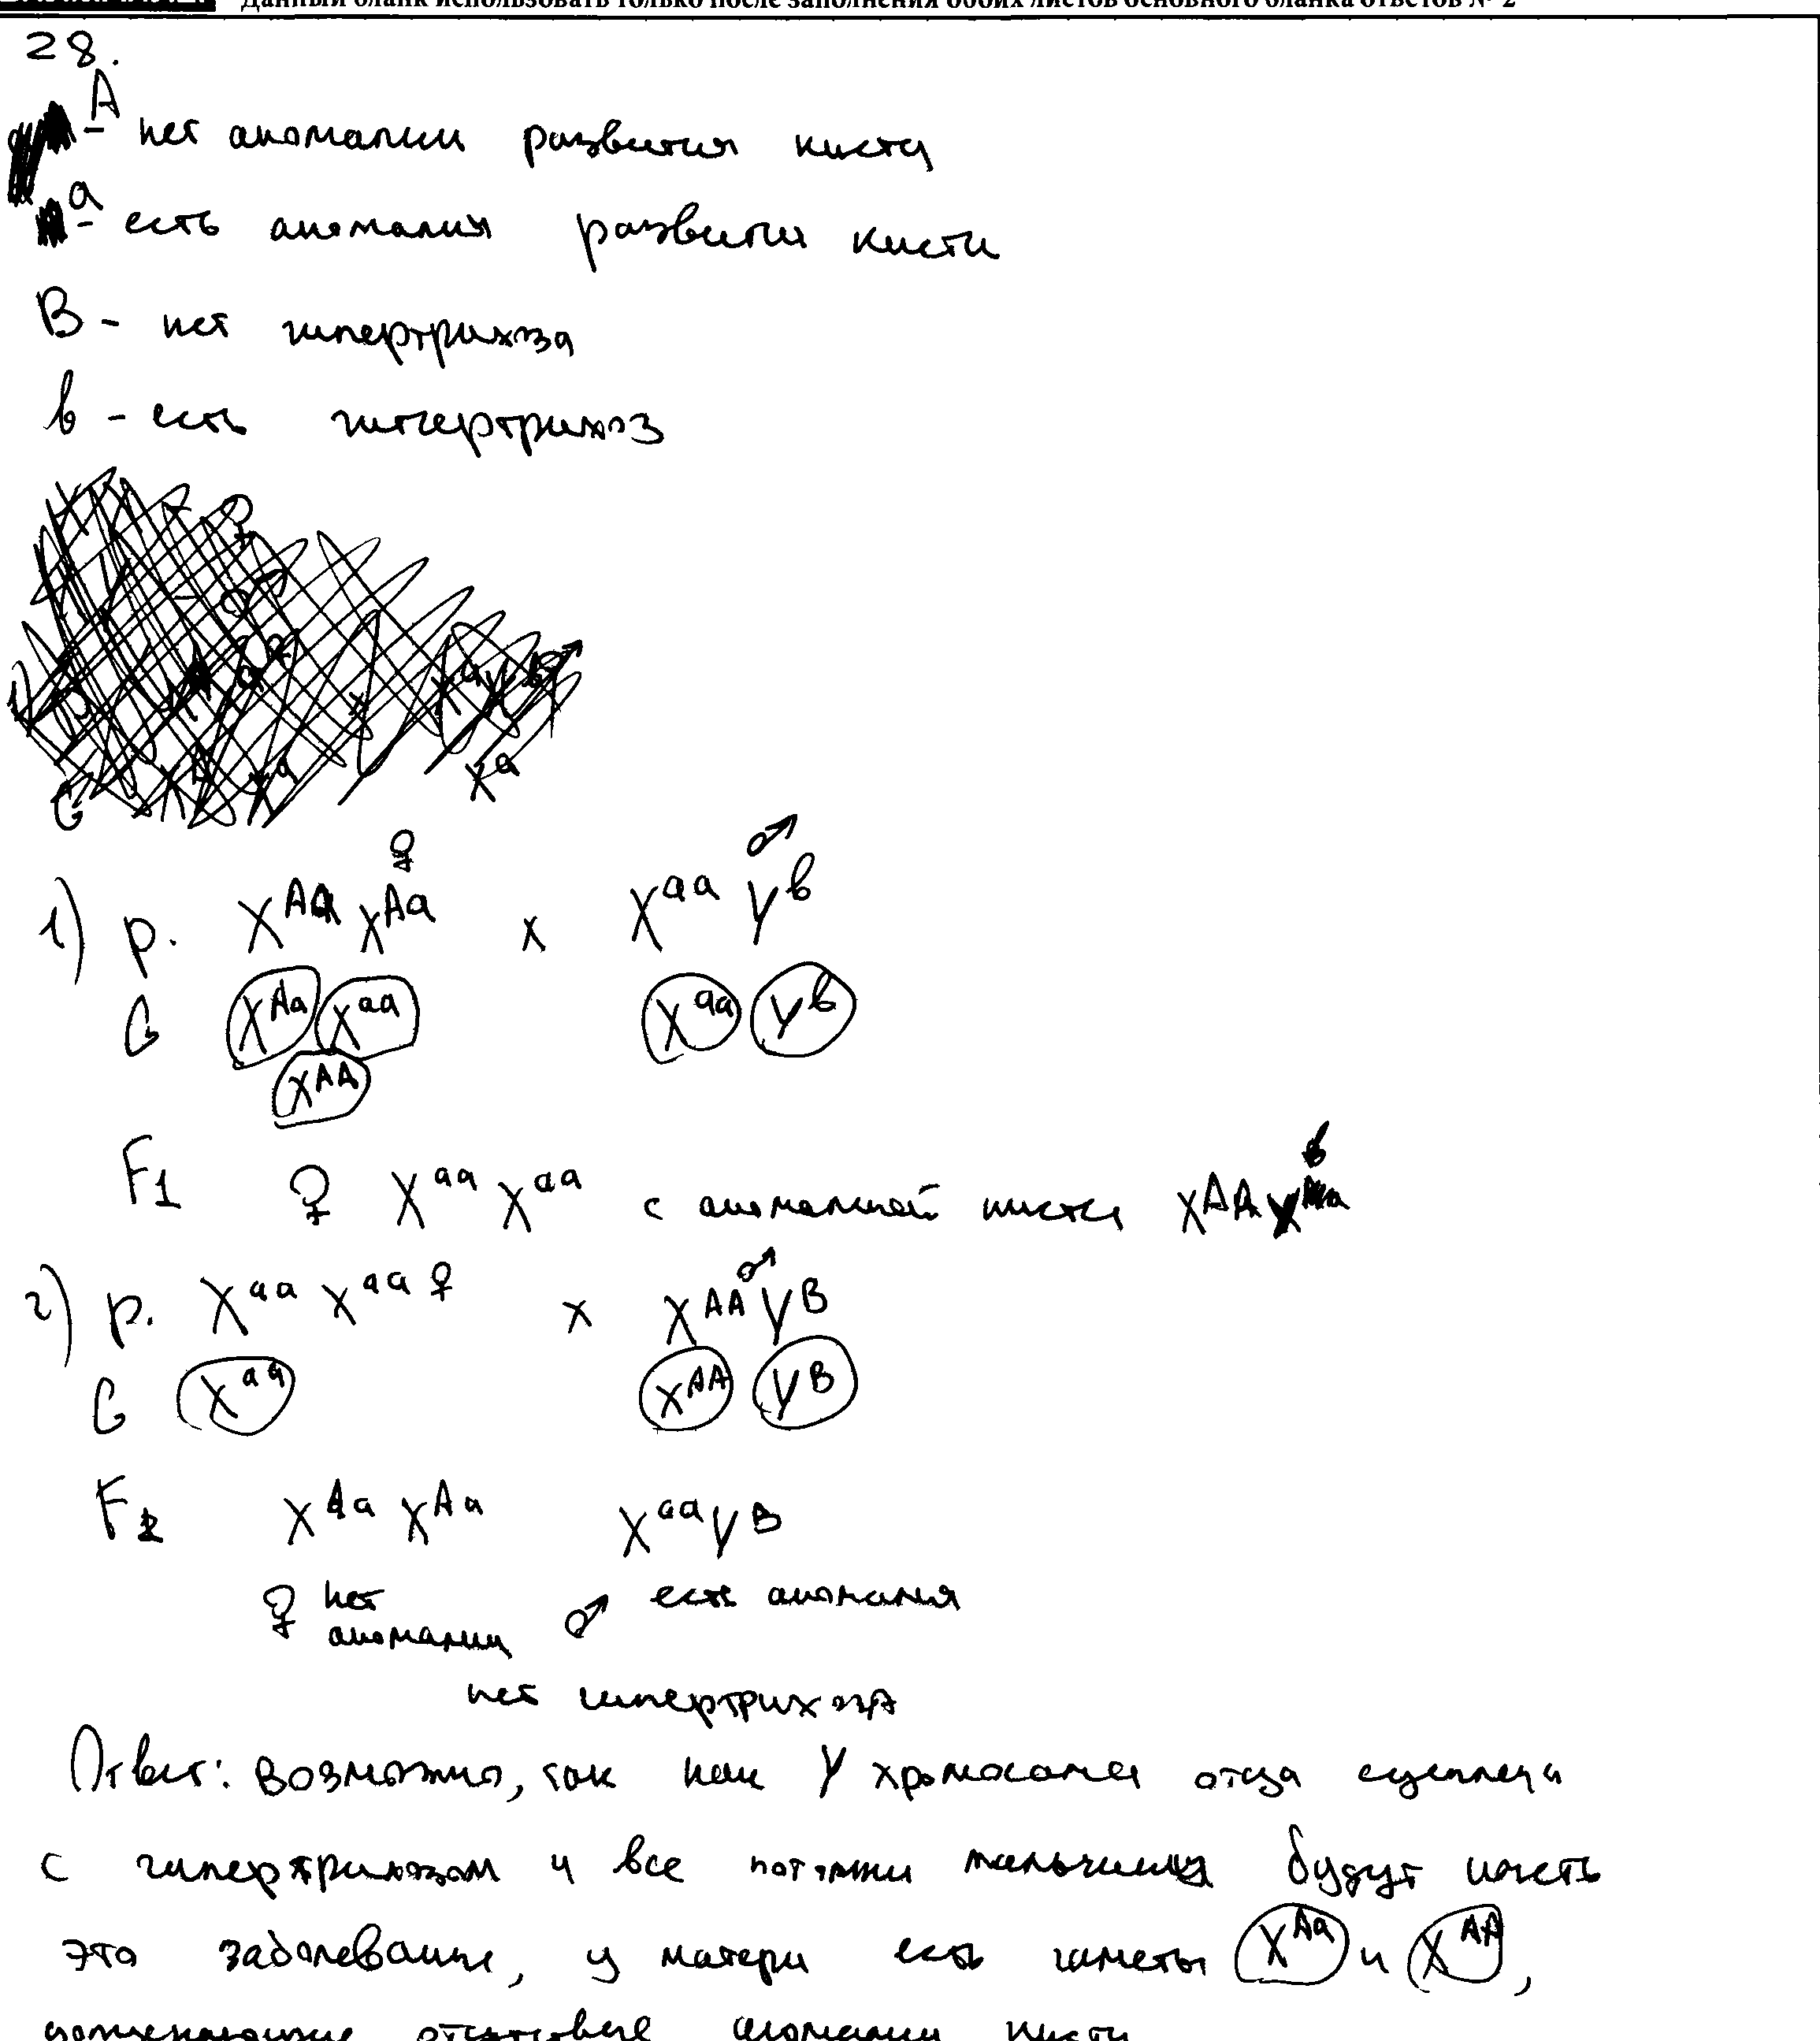 Данный бланк использовать только после заполнения обоих листов основного бланка ответов № 2
28.
A - нет аномалии развития кисти
a - есть аномалия развития кисти
B - нет гипертрихоза
b - есть гипертрихоз
♀ ♂
1) P. X^AA X^Aa x X^aa Y^b
G X^Aa X^aa X^aa Y^b
X^AA
F1 ♀ X^aa X^aa с аномалией кисти X^AA Y^b
2) P. X^aa X^aa ♀ x X^AA Y^B ♂
G X^aa X^AA Y^B
F2 X^Aa X^Aa X^aa Y^B
♀ нет аномалии ♂ есть аномалия
нет гипертрихоза
Ответ: возможно, так как Y хромосома отца сцеплена
с гипертрихозом и все потомки мальчика будут иметь
это заболевание, у матери есть гаметы X^Aa и X^AA,
отсутствие аномалии кисти